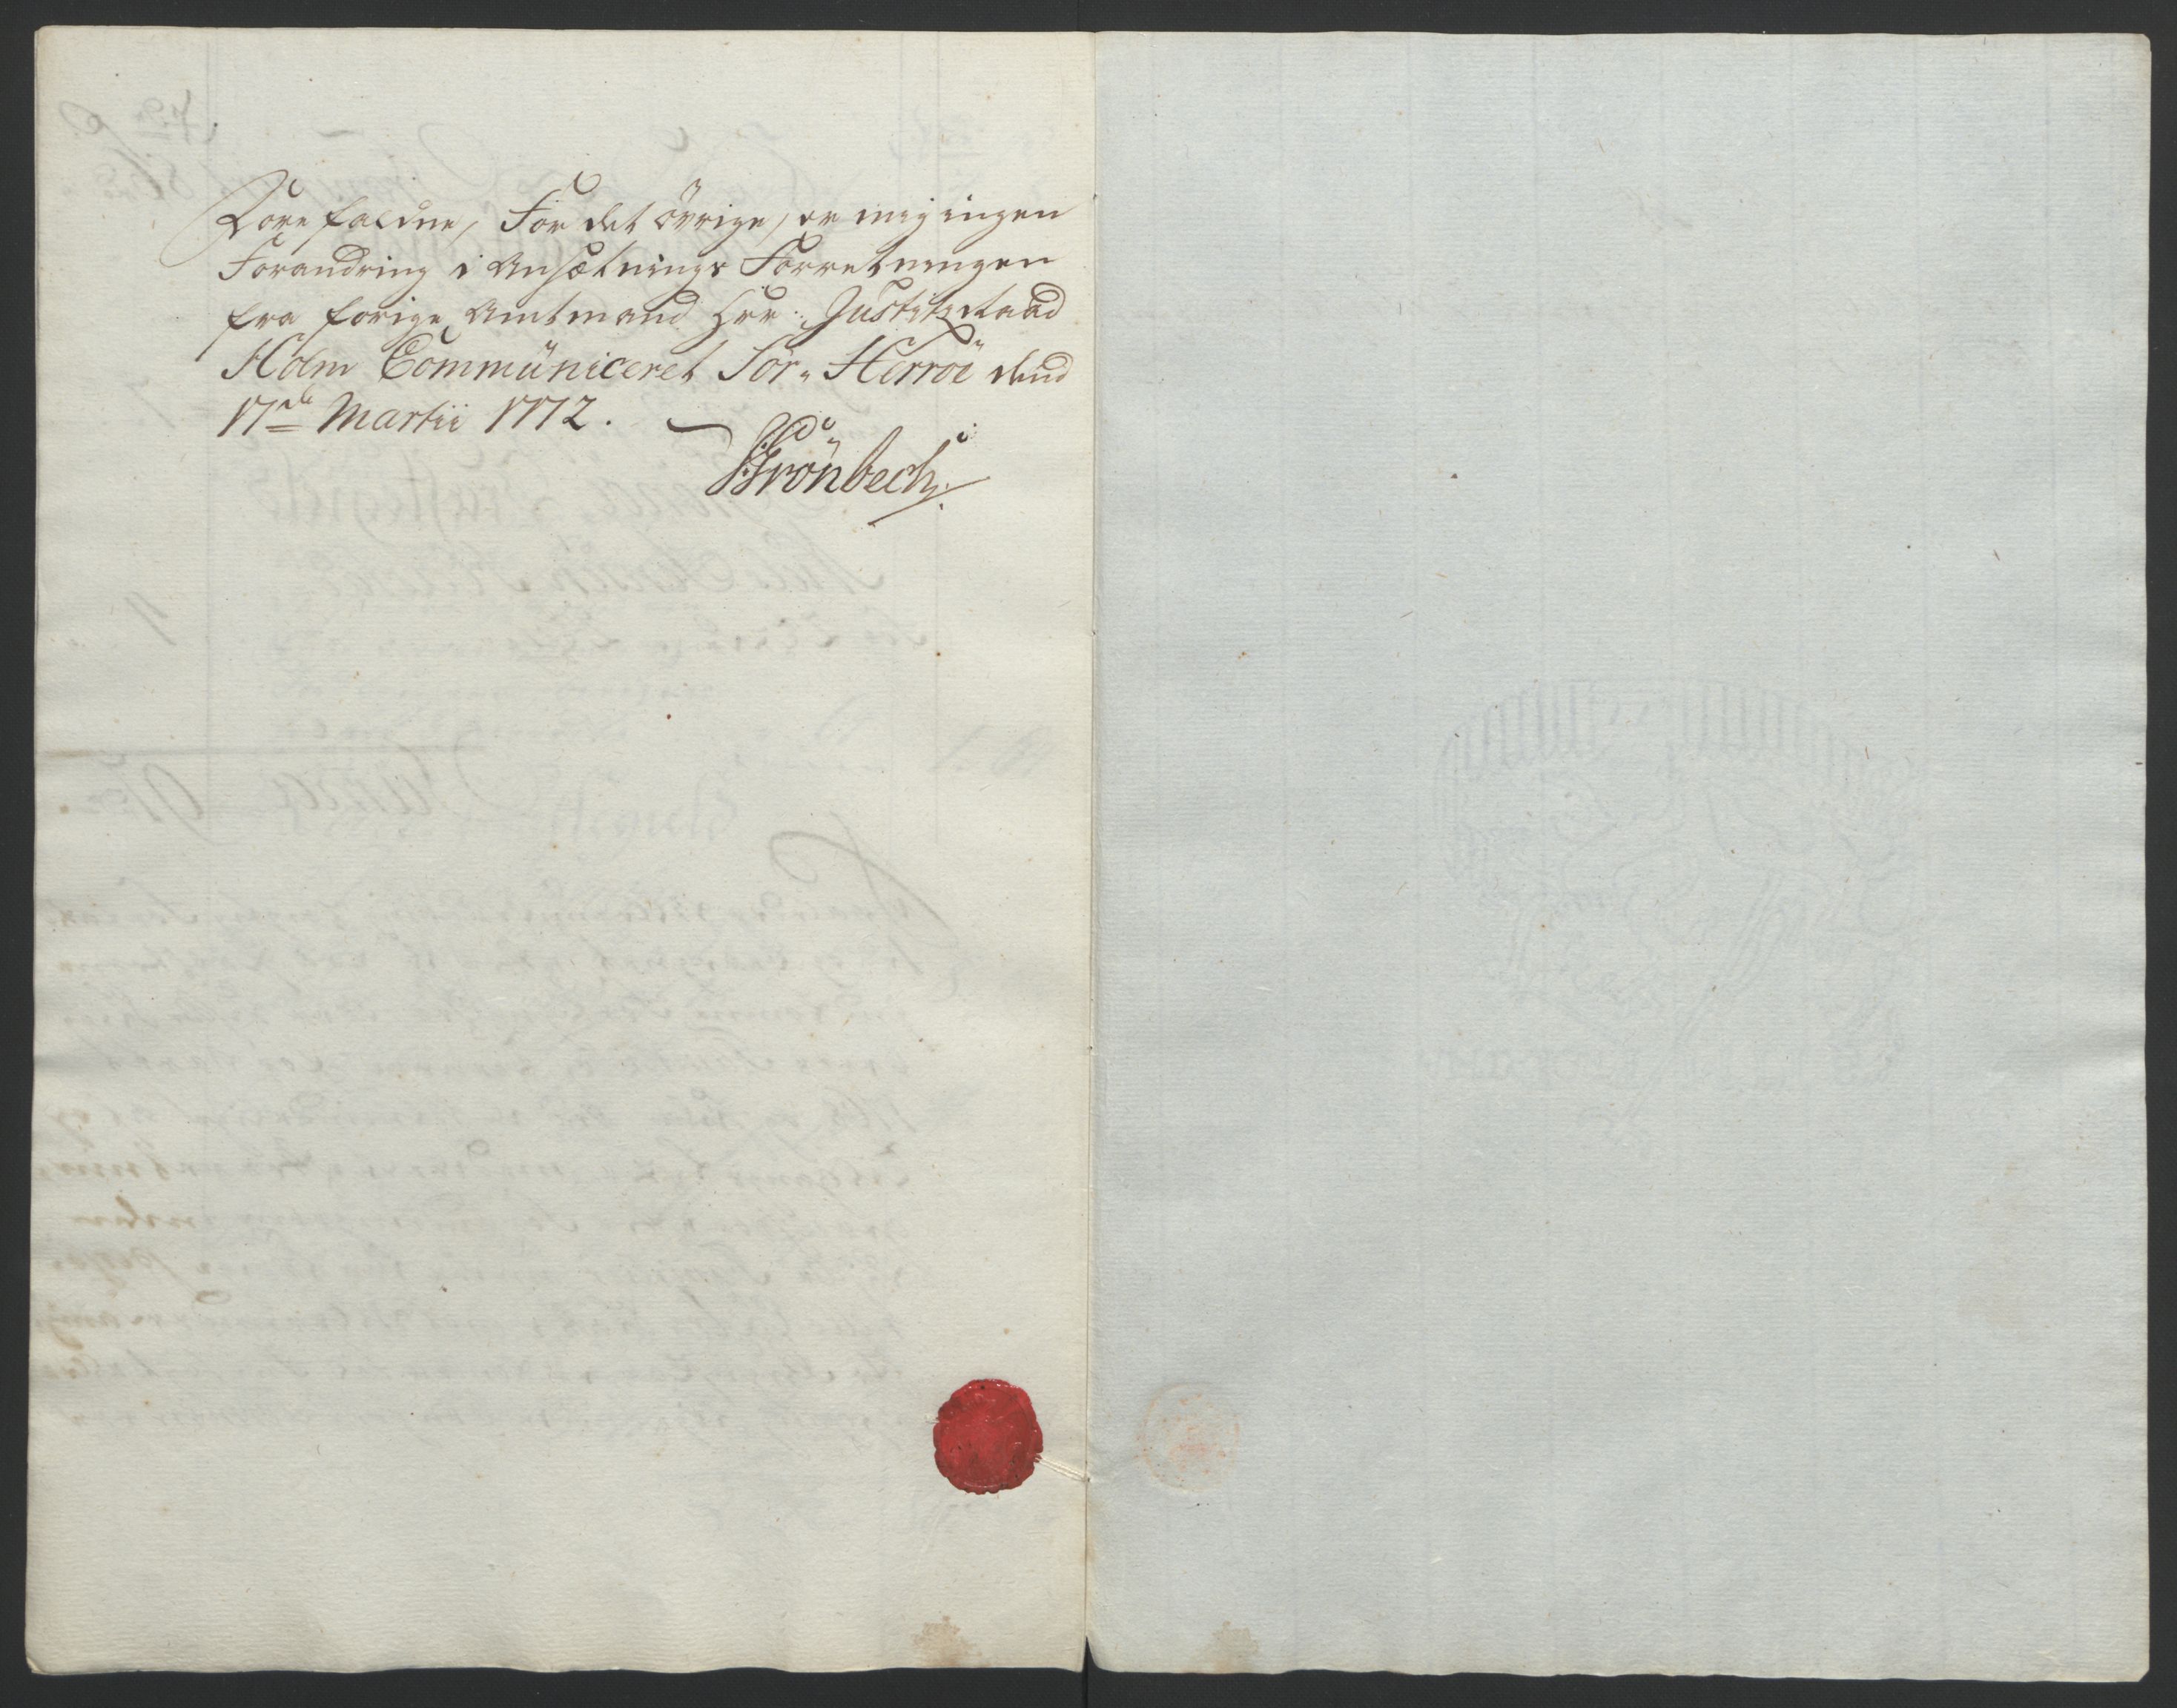 Forefaldne, For det övrige, er mig ingen
Forandring i Ansætnings Forretningen
fra forige Amtmand Hrr: Justitzraad
Holm Communiceret Sör-Herröe dend
17de Martii 1772.
Grönbech